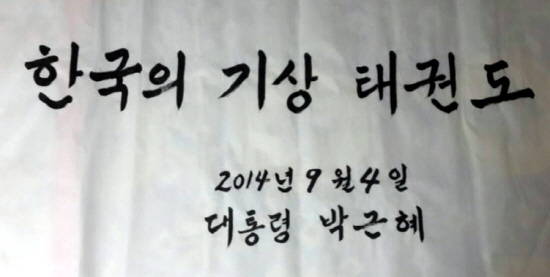 한국의 기상 태권도
2014년 9월 4일
대통령 박근혜